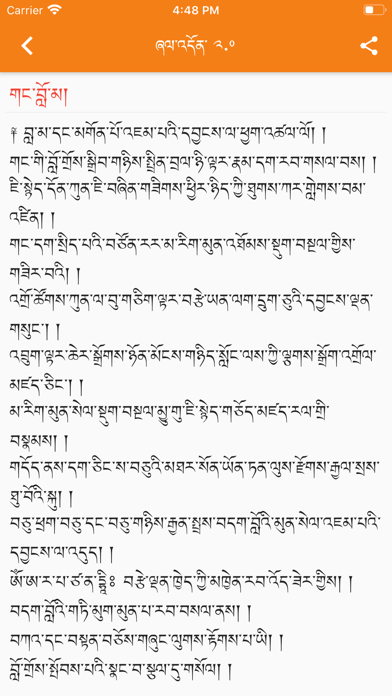 Carrier 4:48 PM
ཞལ་འདོན་ ༢.༠
གང་བློ་མ།
༈ བླ་མ་དང་མགོན་པོ་འཇམ་པའི་དབྱངས་ལ་ཕྱག་འཚལ་ལོ། །
གང་གི་བློ་གྲོས་སྒྲིབ་གཉིས་སྤྲིན་བྲལ་ཉི་ལྟར་རྣམ་དག་རབ་གསལ་བས། །
ཇི་སྙེད་དོན་ཀུན་ཇི་བཞིན་གཟིགས་ཕྱིར་ཉིད་ཀྱི་ཐུགས་ཀར་གླེགས་བམ་
འཛིན། །
གང་དག་སྲིད་པའི་བཙོན་རར་མ་རིག་མུན་འཐོམས་སྡུག་བསྔལ་གྱིས་
གཟིར་བའི། །
འགྲོ་ཚོགས་ཀུན་ལ་བུ་གཅིག་ལྟར་བརྩེ་ཡན་ལག་དྲུག་ཅུའི་དབྱངས་ལྡན་
གསུང་། །
འབྲུག་ལྟར་ཆེར་སྒྲོགས་ཉོན་མོངས་གཉིད་སློང་ལས་ཀྱི་ལྕགས་སྒྲོག་འགྲོལ་
མཛད་ཅིང་། །
མ་རིག་མུན་སེལ་སྡུག་བསྔལ་མྱུ་གུ་ཇི་སྙེད་གཅོད་མཛད་རལ་གྲི་
བསྣམས། །
གདོད་ནས་དག་ཅིང་ས་བཅུའི་མཐར་སོན་ཡོན་ཏན་ལུས་རྫོགས་རྒྱལ་སྲས་
ཐུ་བོའི་སྐུ། །
བཅུ་ཕྲག་བཅུ་དང་བཅུ་གཉིས་རྒྱན་སྤྲས་བདག་བློའི་མུན་སེལ་འཇམ་པའི་
དབྱངས་ལ་འདུད། །
ཨོཾ་ཨ་ར་པ་ཙ་ན་དྷཱིཿ བརྩེ་ལྡན་ཁྱེད་ཀྱི་མཁྱེན་རབ་འོད་ཟེར་གྱིས། །
བདག་བློའི་གཏི་མུག་མུན་པ་རབ་བསལ་ནས། །
བཀའ་དང་བསྟན་བཅོས་གཞུང་ལུགས་རྟོགས་པ་ཡི། །
བློ་གྲོས་སྤོབས་པའི་སྣང་བ་སྩལ་དུ་གསོལ། །